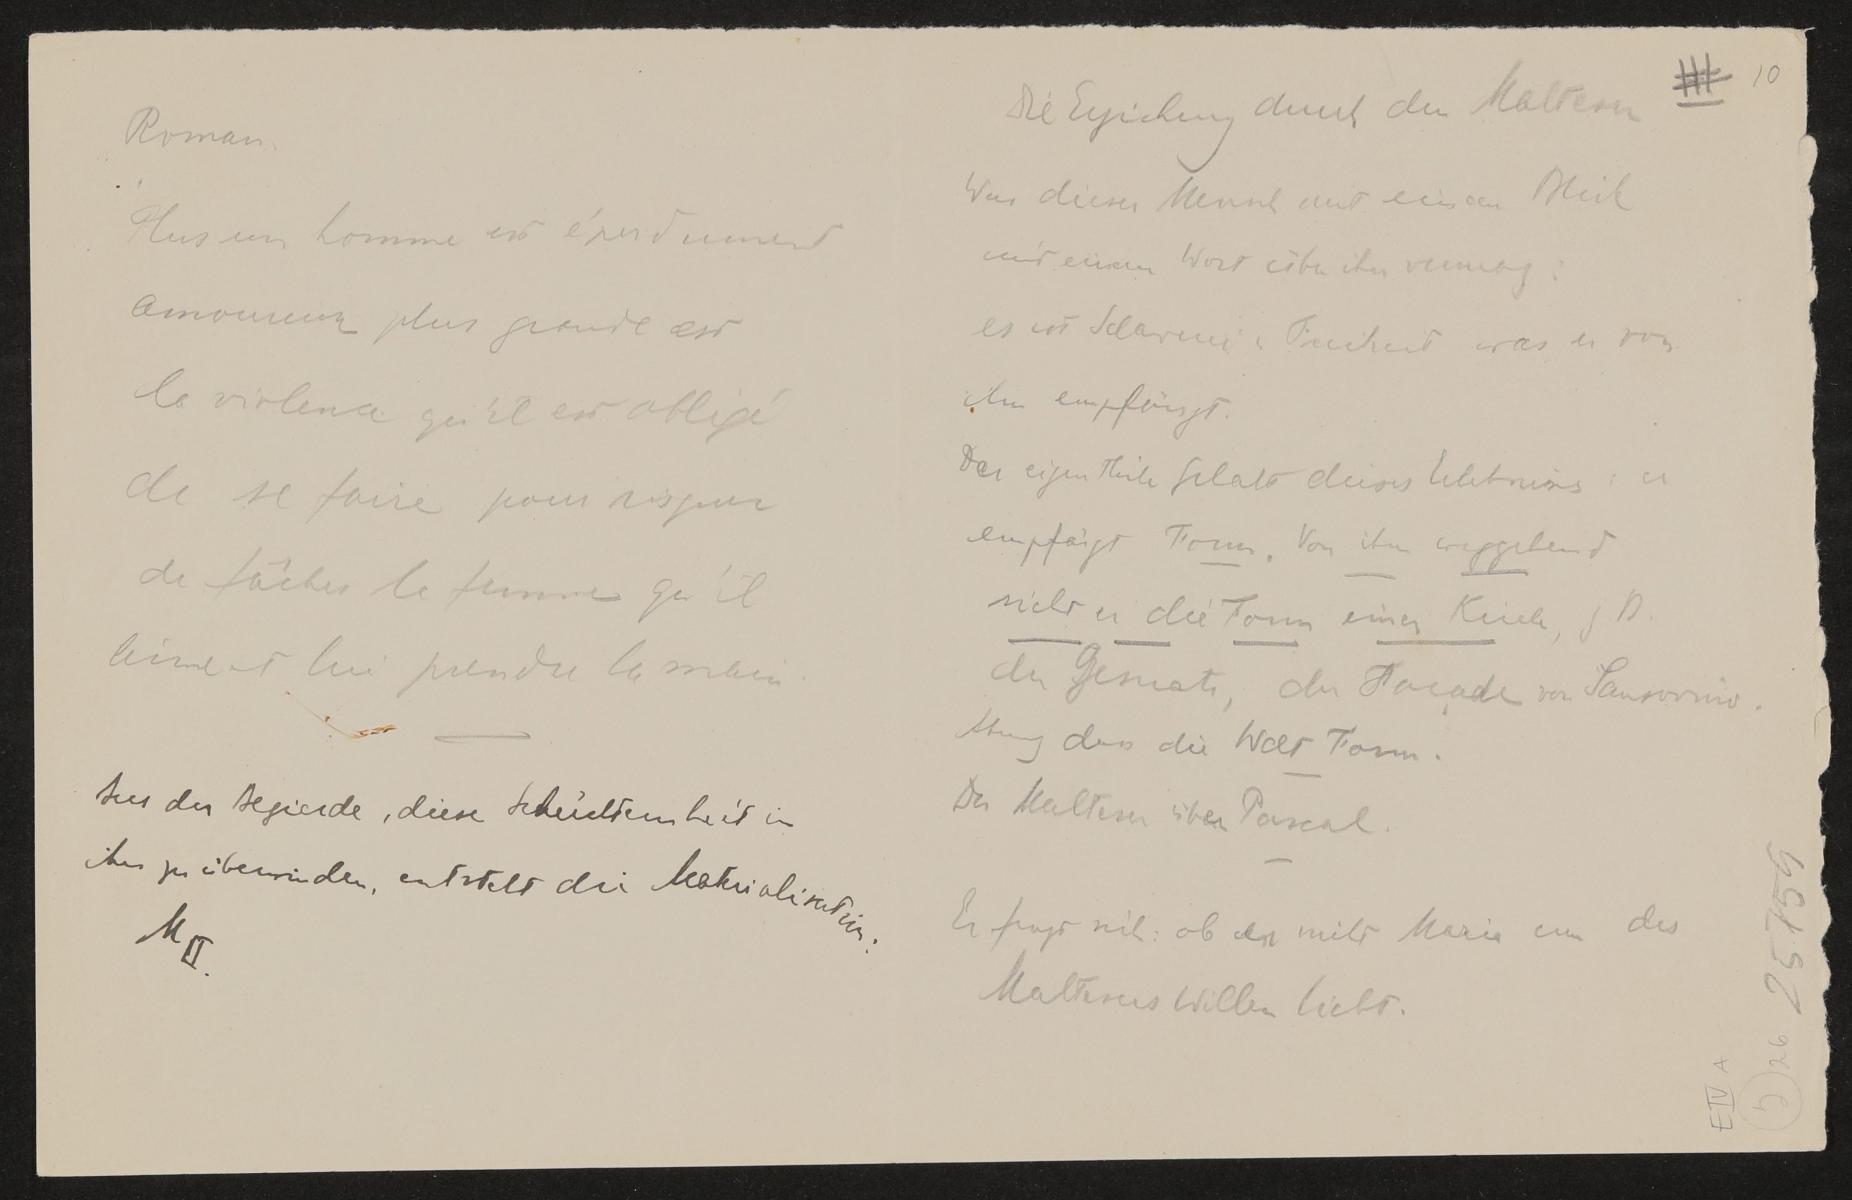 Roman.
Plus un homme est éperdument
amoureux plus grande est
la violence qu'il est obligé
de se faire pour risquer
de fâcher la femme qu'il
aime et lui prendre la main.
Aus der Begierde, diese Schüchternheit in
ihm zu überwinden, entsteht die Materialisation.
M II.
10
Die Erziehung durch den Malteser
Was dieser Mensch mit einem Blick
mit einem Wort über ihn vermag:
es ist Sclaverei u Freiheit was er von
ihm empfängt.
Der eigentliche Gehalt dieses Erlebnisses: er
empfängt Form. Von ihm weggehend
sieht er die Form einer Kirche, z B.
der Gesuati, der Façade von Sansovino.
Ahnung dass die Welt Form.
Der Malteser über Pascal.
Er fragt sich: ob er nicht Maria um des
Maltesers willen liebt.
E IV A
26